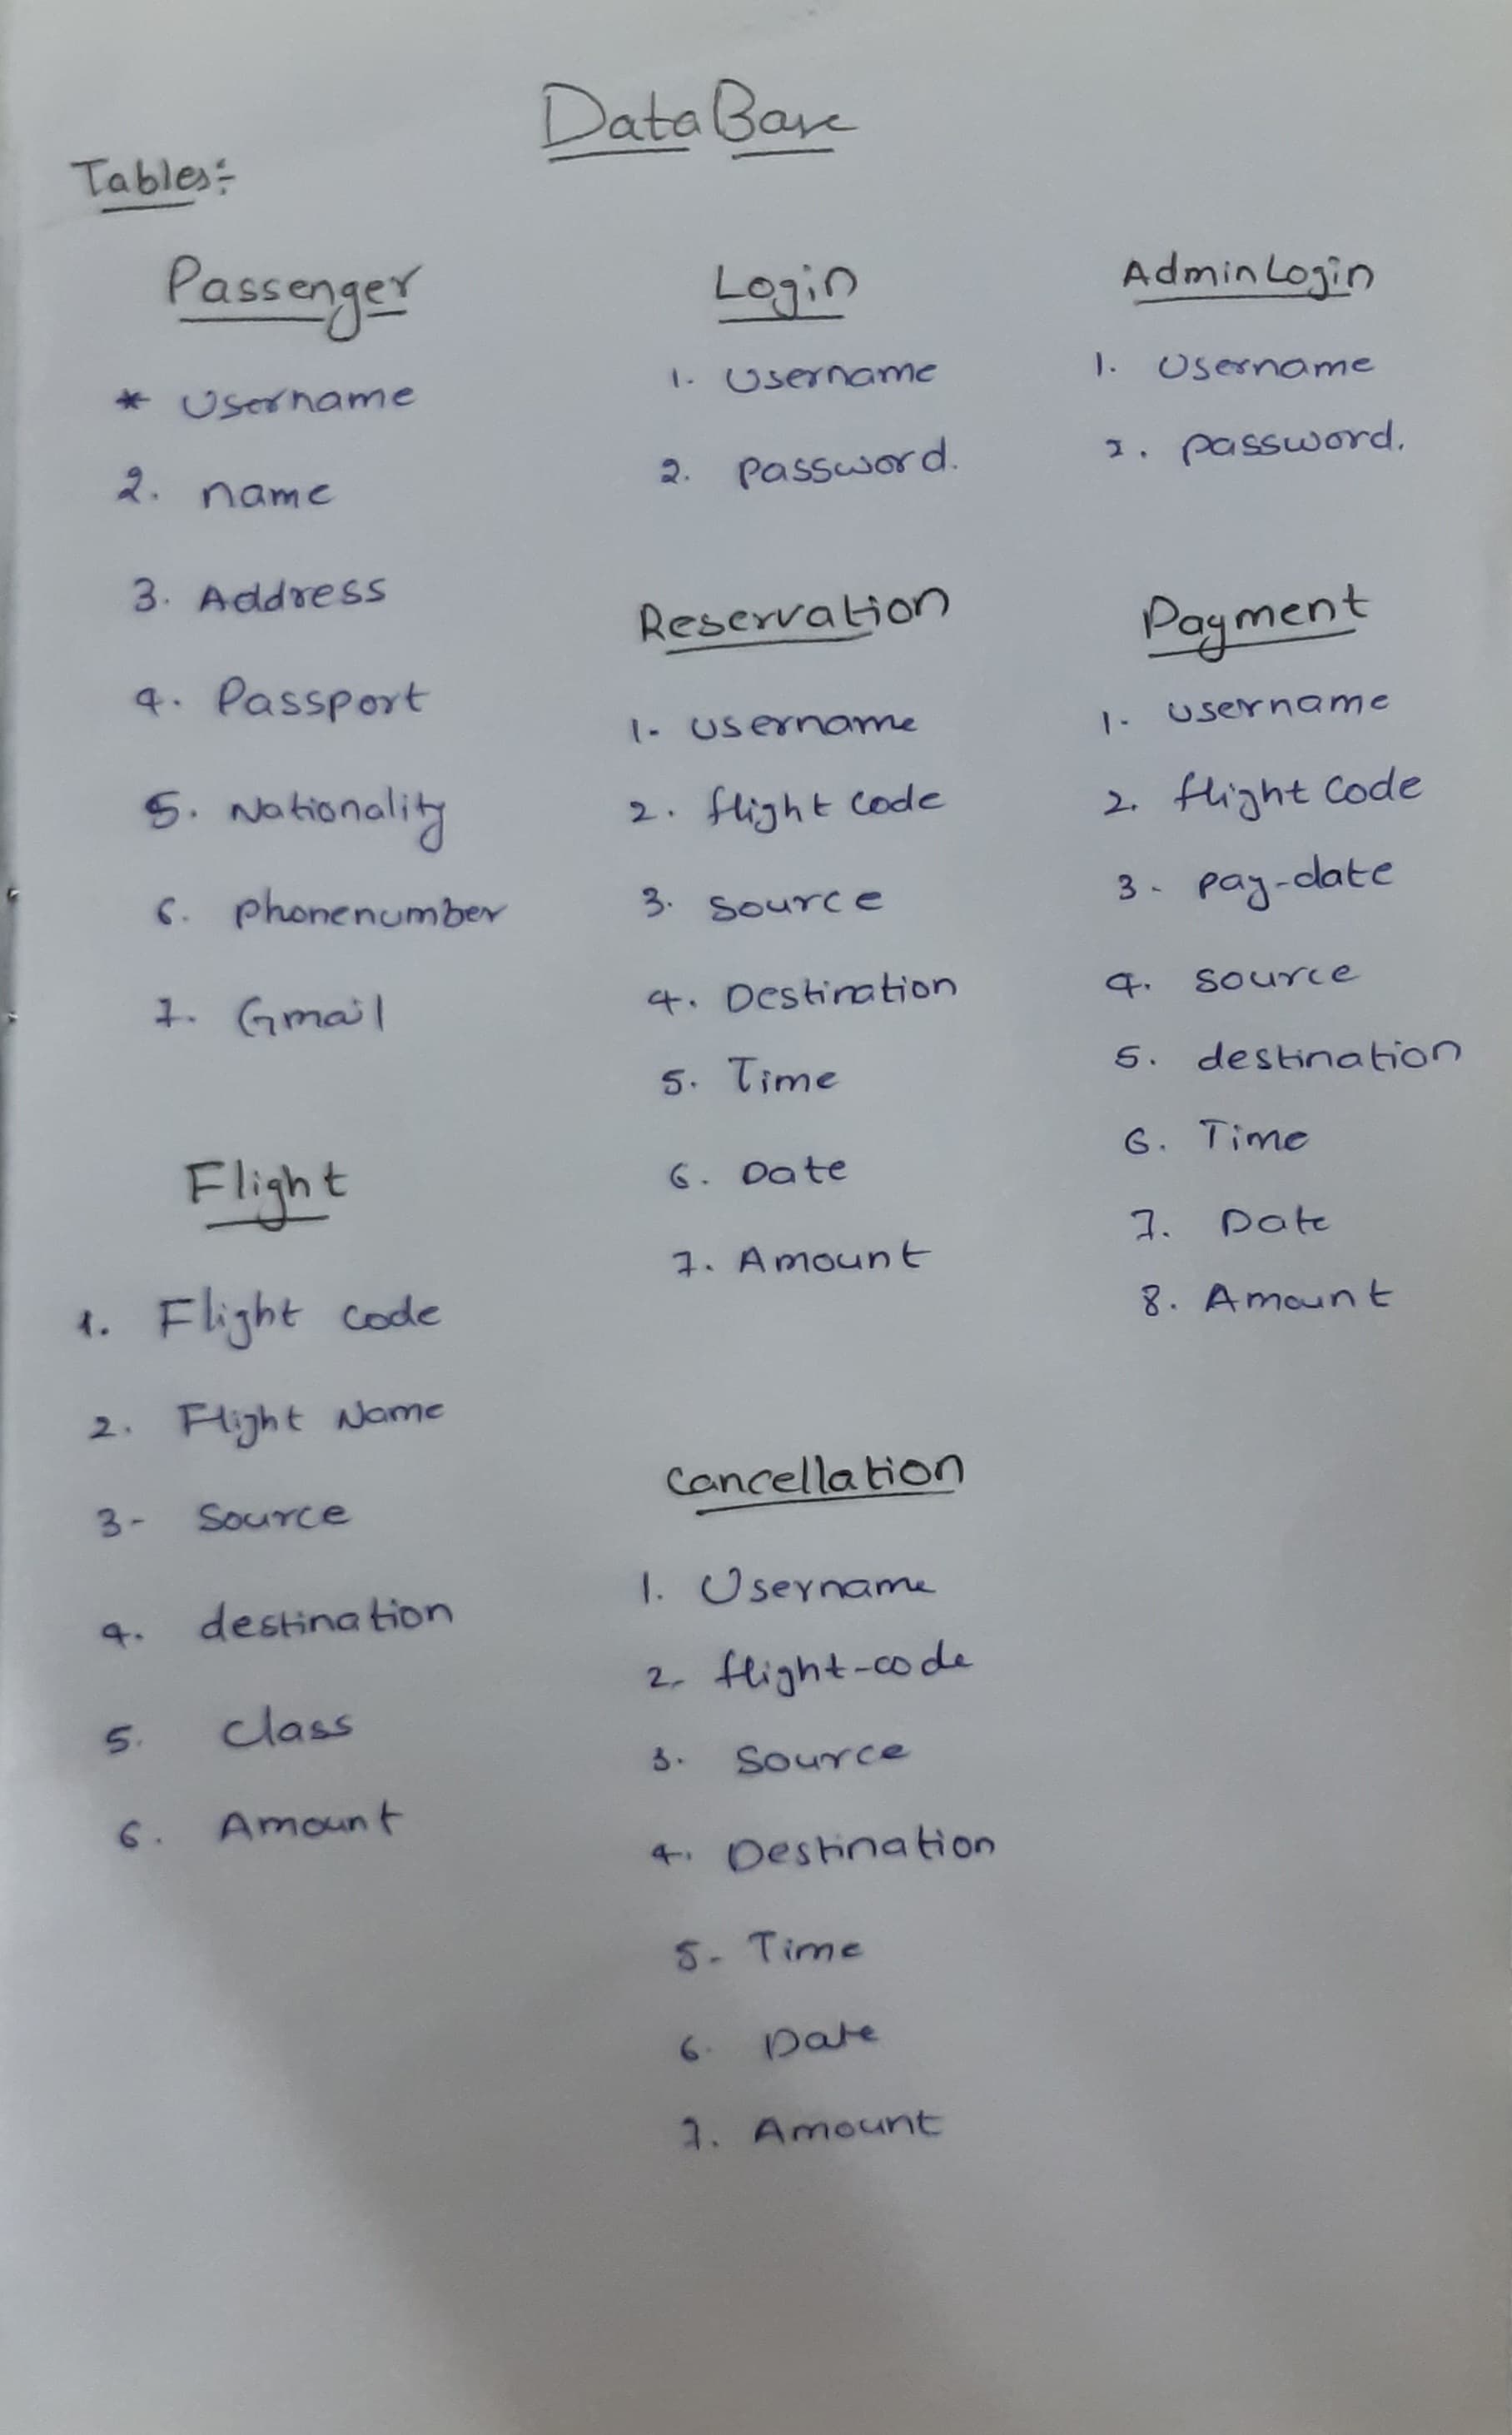 DataBase
Tables:-
Passenger
* Username
2. name
3. Address
4. Passport
5. Nationality
6. phonenumber
7. Gmail
Flight
1. Flight code
2. Flight Name
3- Source
4. destination
5. class
6. Amount
Login
1. Username
2. password.
Reservation
1. username
2. flight code
3. source
4. Destination
5. Time
6. Date
7. Amount
Cancellation
1. Username
2. flight-code
3. Source
4. Destination
5- Time
6. Date
7. Amount
AdminLogin
1. Username
2. password.
Payment
1. username
2. flight code
3- pay-date
4. source
5. destination
6. Time
7. Date
8. Amount